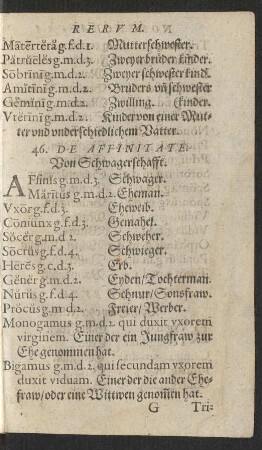 RERVM.
Mātērtĕră g.f.d.1. Mutterschwester.
Pātrŭēlĕs g.m.d.3. Zweyer brüder kinder.
Sobrīnī g.m.d.2. Zweyer schwester kind.
Amitīnī g.m.d.2. Bruders vñ schwester
Gĕmīnī g.m.d.2. Zwilling. (kinder.
Vtĕrīnī g.m.d.2. Kinder von einer Mut-
ter vnd vnderschiedlichem Vatter.
46. DE AFFINITATE.
Von Schwagerschafft.
AFfīnis g.m.d.3. Schwager.
Mărītus g.m.d.2. Eheman.
Vxŏr g.f.d.3. Eheweib.
Coniunx g.f.d.3. Gemahel.
Sŏcĕr g.m.d.2. Schweher.
Sŏcrŭs g.f.d.4. Schwieger.
Hērēs g.c.d.3. Erb.
Gĕnĕr g.m.d.2. Eyden/Tochterman.
Nŭrŭs g.f.d.4. Schnur/Sonsfraw.
Prŏcus g.m.d.2. Freier/Werber.
Monogamus g.m.d.2. qui duxit vxorem
virginem. Einer der ein Jungfraw zur
Ehe genommen hat.
Bigamus g.m.d.2. qui secundam vxorem
duxit viduam. Einer der die ander Ehe-
fraw/oder eine Wittwen genom̄en hat.
G Tri-